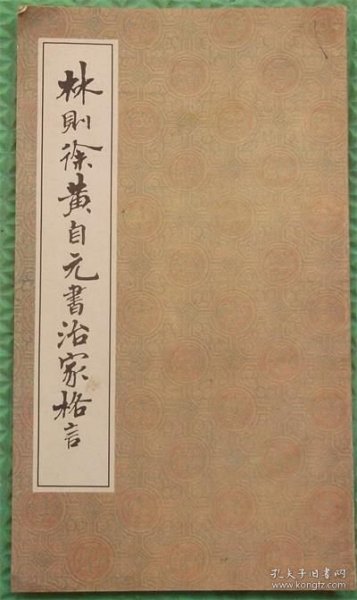 林則徐黄自元書治家格言
孔夫子旧书网
www.kongfz.com